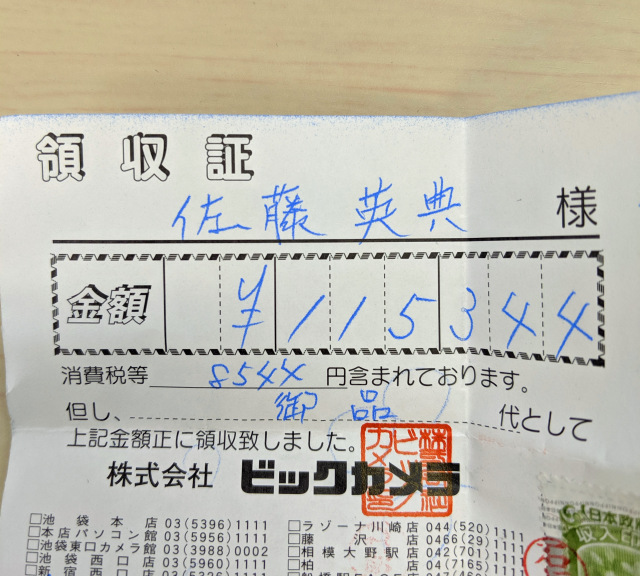 領収証
佐藤 英典 様
金額 ¥115344
消費税等 8544 円含まれております。
但し、 御品 代として
上記金額正に領収致しました。
株式会社 ビックカメラ
□池袋本店 03(5396)1111
□本店パソコン館 03(5956)1111
□池袋東口カメラ館 03(3988)0002
□池袋西口店 03(5960)1111
□新宿西口店 03(5326)1111
□ラゾーナ川崎店 044(520)1111
□藤沢店 0466(29)1111
□相模大野駅店 042(701)1111
□柏店 04(7165)1111
日本政
収入印